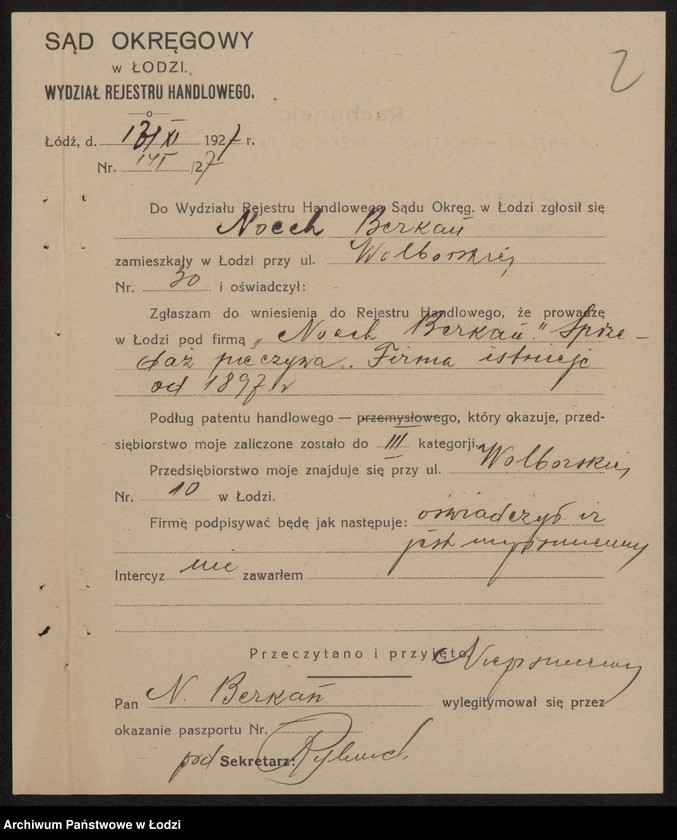 SĄD OKRĘGOWY
w ŁODZI.
WYDZIAŁ REJESTRU HANDLOWEGO.
2
Łódź, d. XI 1927 r.
Nr. /27
Do Wydziału Rejestru Handlowego Sądu Okręg. w Łodzi zgłosił się
Noech Berkań
zamieszkały w Łodzi przy ul. Wolborskiej
Nr. 30 i oświadczył:
Zgłaszam do wniesienia do Rejestru Handlowego, że prowadzę
w Łodzi pod firmą „Noech Berkań." Sprze-
daż pieczywa. Firma istnieje
od 1897 r
Podług patentu handlowego — przemysłowego, który okazuje, przed-
siębiorstwo moje zaliczone zostało do III kategorji.
Przedsiębiorstwo moje znajduje się przy ul. Wolborskiej
Nr. 10 w Łodzi.
Firmę podpisywać będę jak następuje: oświadczył iż
jest niepiśmienny
Intercyz nie zawarłem
Przeczytano i przyjęto. Niepiśmienny
Pan N. Berkań wylegitymował się przez
okazanie paszportu Nr.
pod Sekretarz:
Archiwum Państwowe w Łodzi